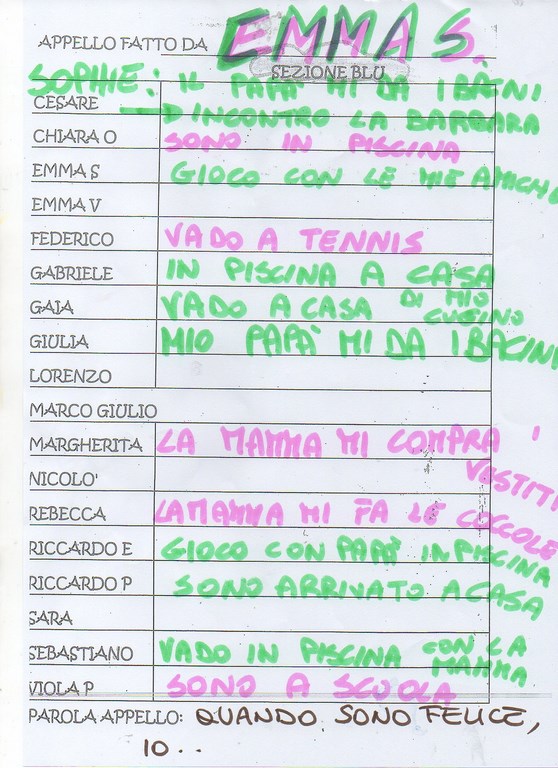 APPELLO FATTO DA EMMA S.
SEZIONE BLU
SOPHIE: IL PAPÀ MI DÀ I BACINI
CESARE INCONTRO LA BARBARA
CHIARA O SONO IN PISCINA
EMMA S GIOCO CON LE MIE AMICHE
EMMA V
FEDERICO VADO A TENNIS
GABRIELE IN PISCINA A CASA
GAIA VADO A CASA DI MIO CUGINO
GIULIA MIO PAPÀ MI DÀ I BACINI
LORENZO
MARCO GIULIO
MARGHERITA LA MAMMA MI COMPRA I VESTITI
NICOLO'
REBECCA LA MAMMA MI FA LE COCCOLE
RICCARDO E GIOCO CON PAPÀ IN PISCINA
RICCARDO P SONO ARRIVATO A CASA
SARA
SEBASTIANO VADO IN PISCINA CON LA MAMMA
VIOLA P SONO A SCUOLA
PAROLA APPELLO: QUANDO SONO FELICE,
IO..